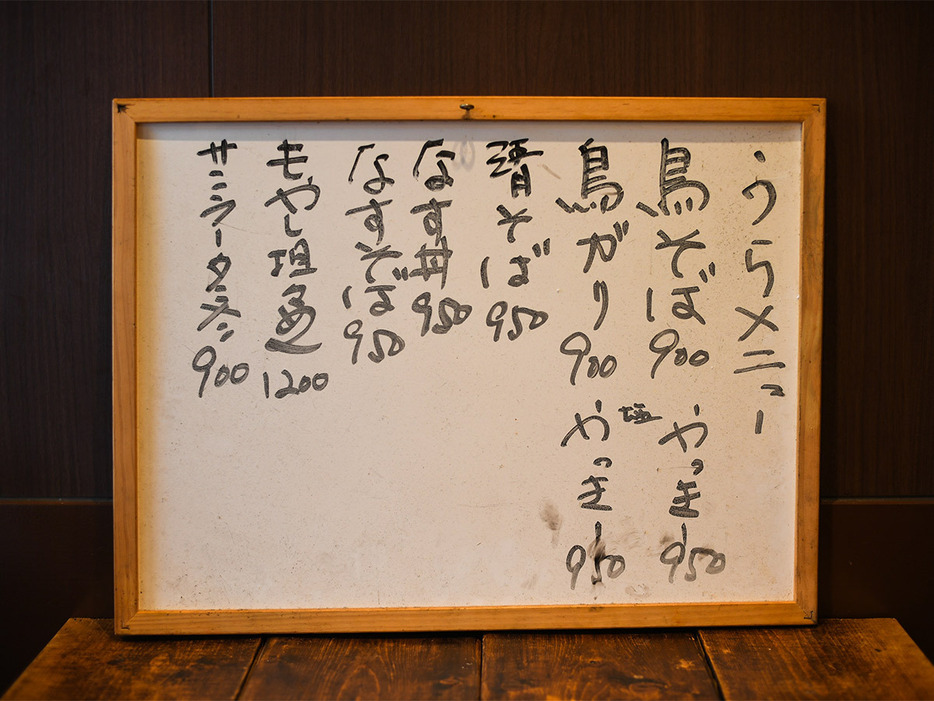 うらメニュー
鳥そば 900
やっきー 950
鳥ガリ 900
塩やっきー 950
清そば 950
なす丼 950
なすそば 950
もやし塩
1200
サンラータン 900